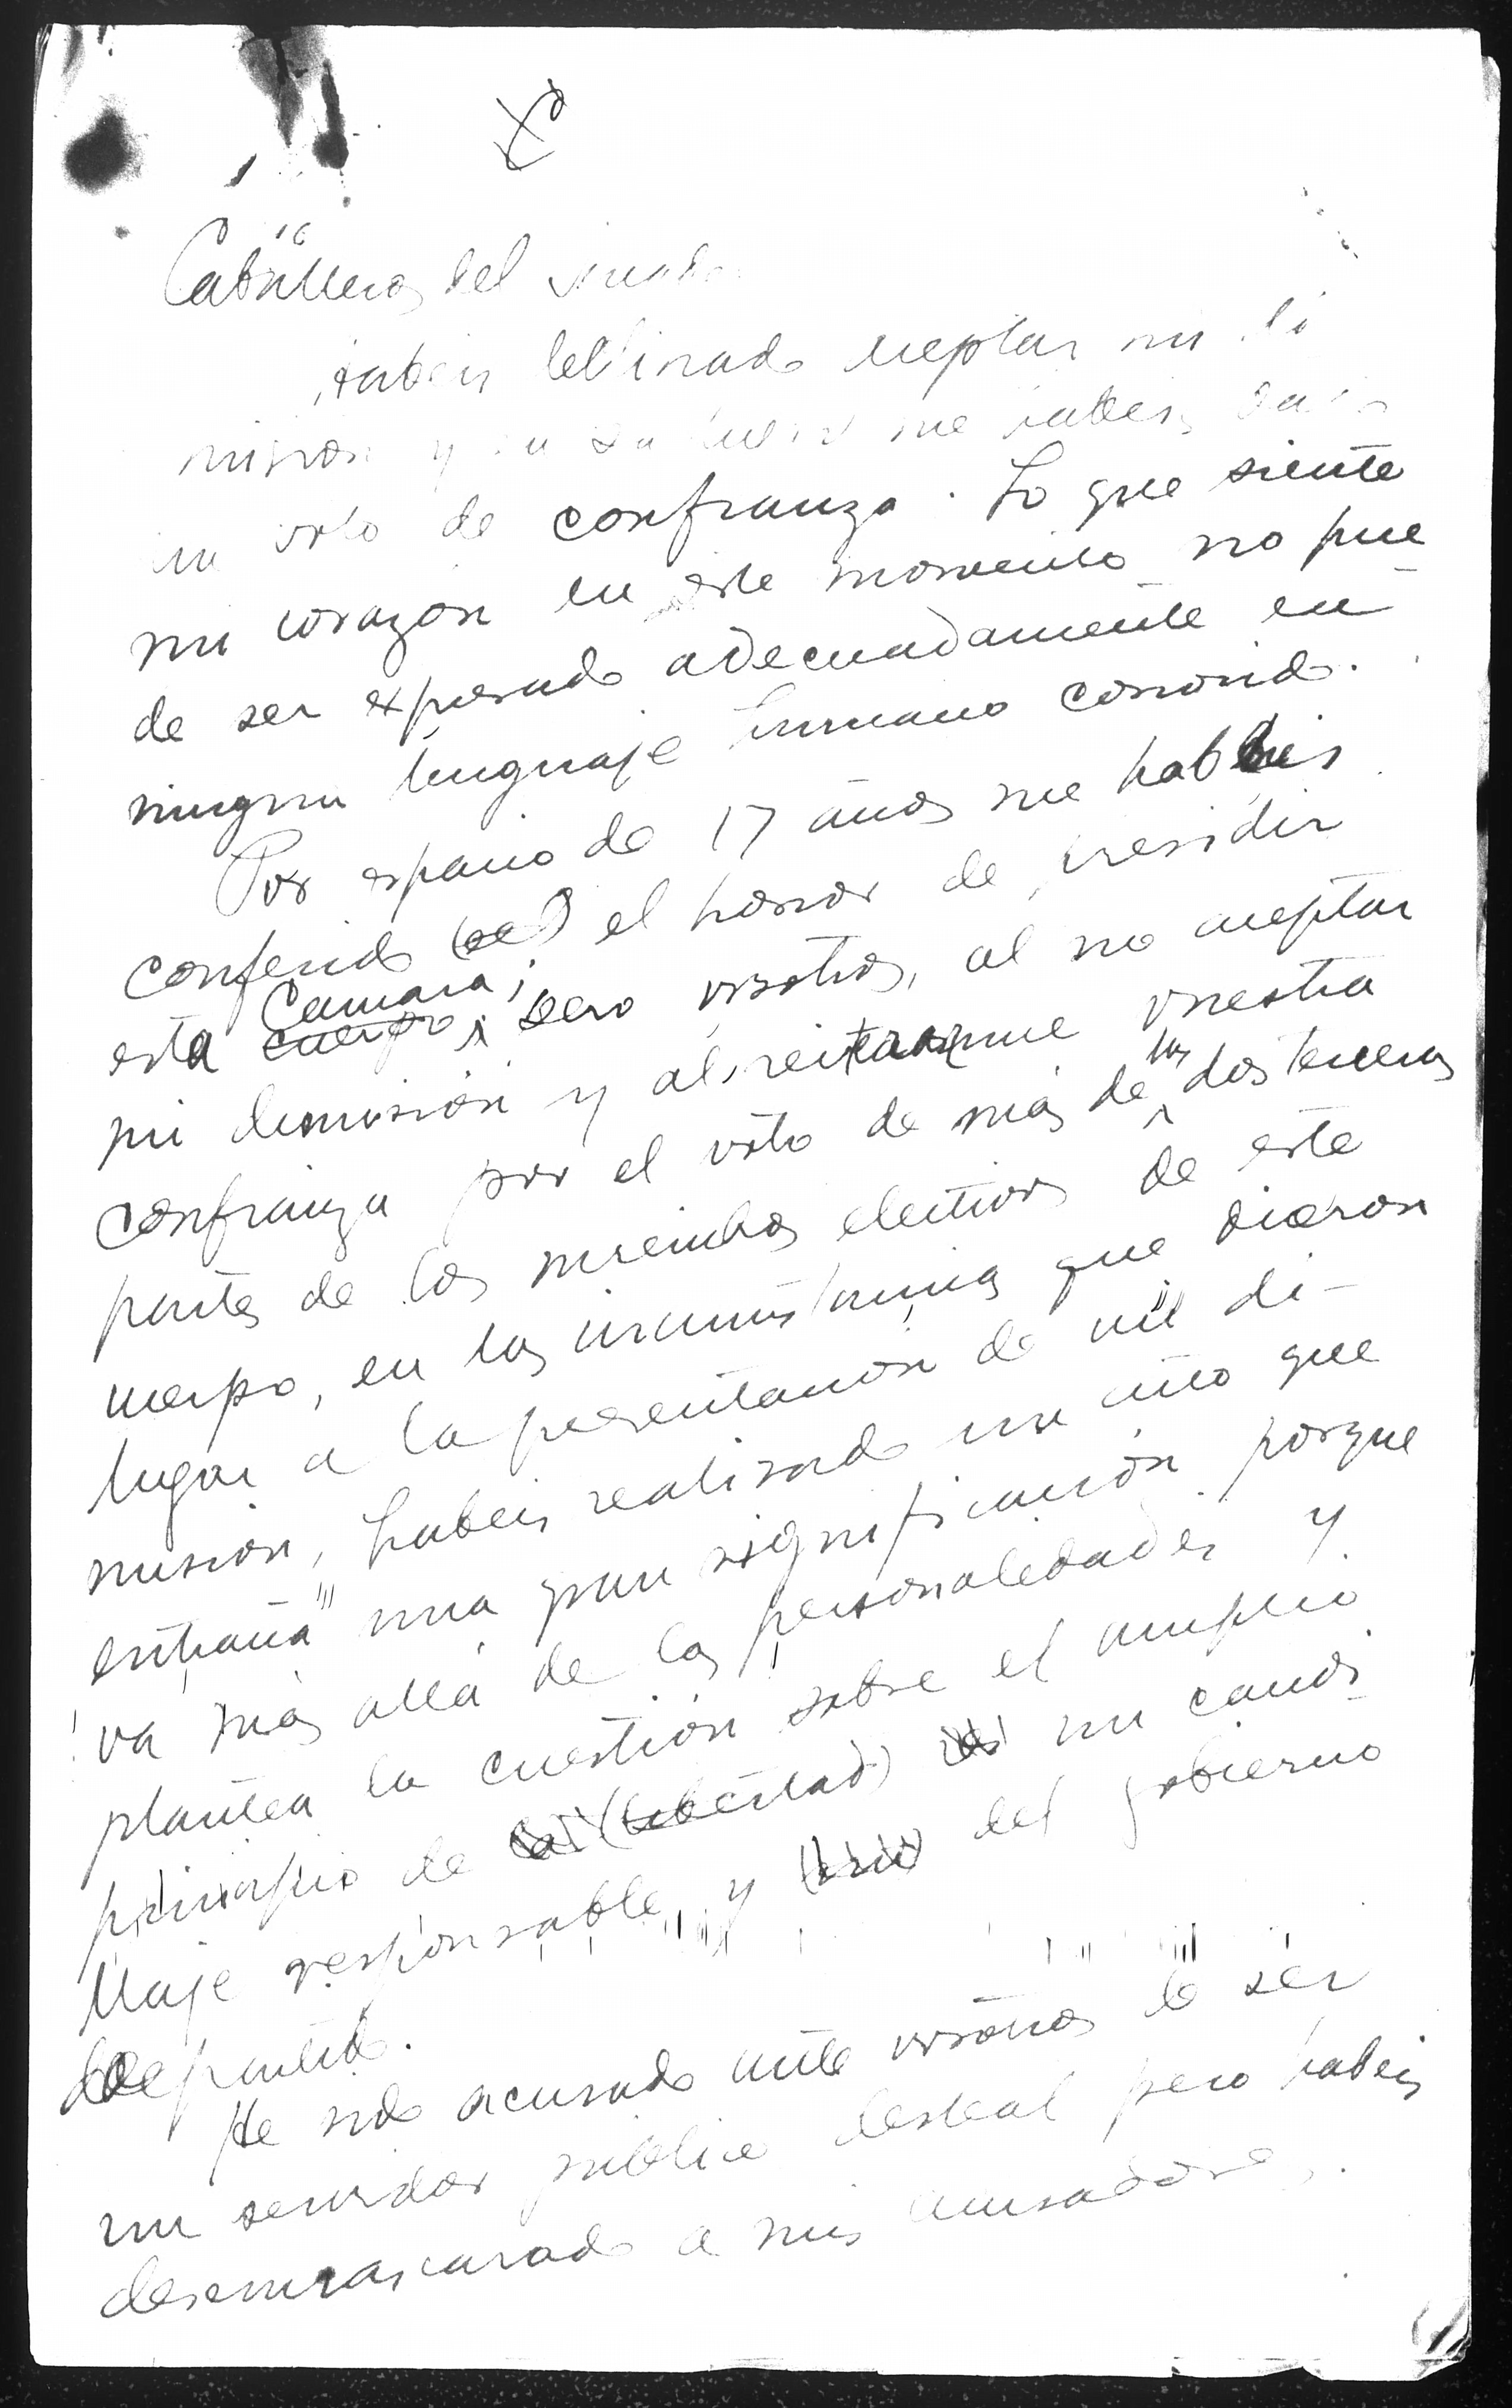 Caballeros del senado
Habeis declinado aceptar mi di
mision y en su lugar me habeis dado
un voto de confianza. Lo que siente
mi corazon en este momento no pue
de ser expresado adecuadamente en
ningun lenguaje humano conocido.
Por espacio de 17 años me habeis
conferido el honor de presidir
esta cuerpo Camara; pero vosotros, al no aceptar
mi dimision y al reiterarme vuestra
confianza por el voto de más de las dos terceras
partes de los miembros electivos de este
cuerpo, en las circunstancias que dieron
lugar a la presentación de mi di-
mision, habeis realizado un acto que
entraña una gran significación porque
va más allá de las personalidades y
plantea la cuestión sobre el amplio
principio de la (libertad) un caudi
llaje responsable y del gobierno
de partido.
He sido acusado ante vosotros de ser
un servidor publico desleal pero habeis
desenmascarado a mis acusadores.